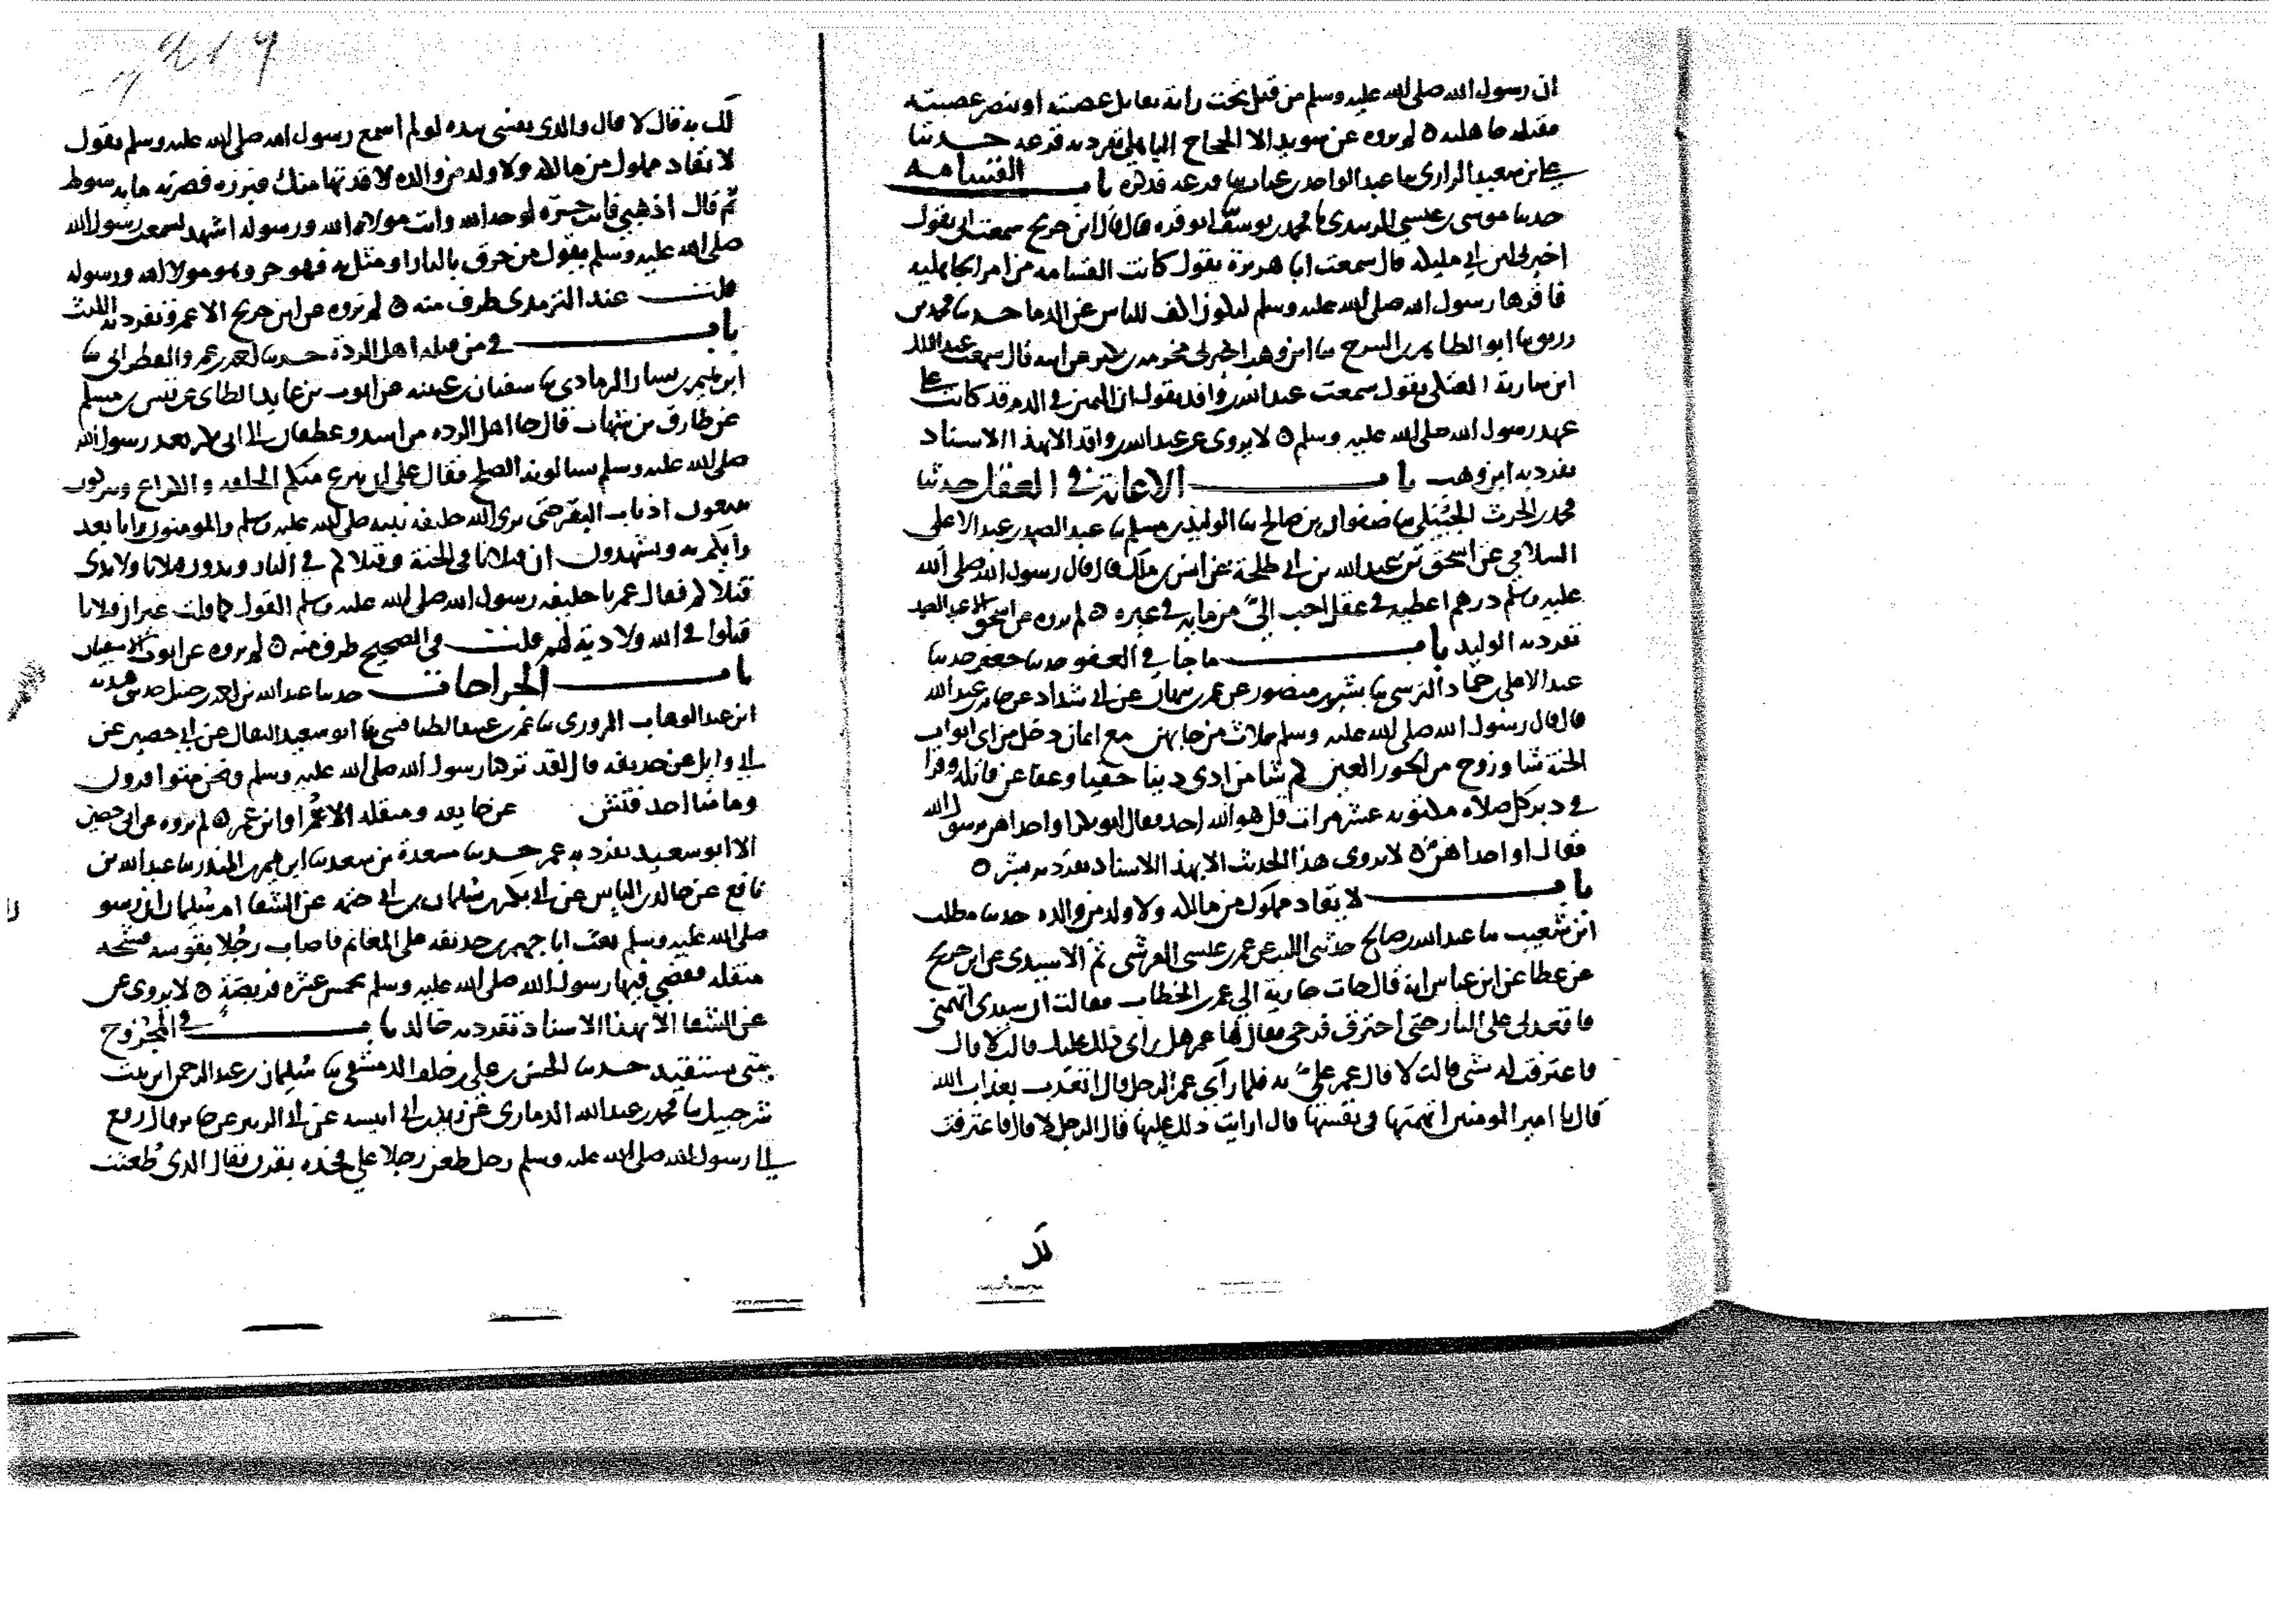 ان رسول الله صلى الله عليه وسلم من قتل تحت راية يقاتل عصبية او ينصر عصبية
فقتله جاهلية ٥ لم يروه عن سويد الا الحجاج الباهلي تفرد به قزعة حدثنا
علي بن سعيد الرازي ثنا عبد الواحد بن غياث ثنا قزعة فذكره باب القسامة
حدثنا موسى بن عيسى الزبيدي ثنا محمد بن يوسف ثنا ابو قرة قال قال ابن جريج سمعت ابي يقول
اخبرني ابن ابي مليكة قال سمعت ابا هريرة يقول كانت القسامة من امر الجاهلية
فاقرها رسول الله صلى الله عليه وسلم ليكون اكف للناس عن الدما حدثنا محمد بن
رزيق ثنا ابو الطاهر بن السرح ثنا ابن وهب اخبرني مخرمة بن بكير عن ابيه قال سمعت عبد الله
ابن يقول سمعت عبد الله بن واقد يقول ان اليمين في الدم قد كانت على
عهد رسول الله صلى الله عليه وسلم ٥ لا يروى عن عبد الله بن واقد الا بهذا الاسناد
تفرد به ابن وهب باب الاعانة في العقل حدثنا
محمد بن الحرث الجبيلي ثنا صفوان بن صالح ثنا الوليد بن مسلم ثنا عبد الصمد بن عبد الاعلى
السلامي عن اسحق بن عبد الله بن ابي طلحة عن انس بن ملك قال قال رسول الله صلى الله
عليه وسلم درهم اعطيه في عقل احب الي من ماية في غيره ٥ لم يروه عن اسحق الا عبد الصمد
تفرد به الوليد باب ما جا في العفو حدثنا جعفر حدثنا
عبد الاعلى بن حماد النرسي ثنا بشر بن منصور عن عمر بن نبهان عن ابي شداد عن جابر بن عبد الله
قال قال رسول الله صلى الله عليه وسلم ثلاث من جا بهن مع ايمان دخل من اي ابواب
الجنة شا وزوج من الحور العين كم شا من ادى دينا خفيا وعفا عن قاتله وقرا
في دبر كل صلاه مكتوبه عشر مرات قل هو الله احد فقال ابو بكر او احداهن يرسول الله
فقال او احداهن ٥ لا يروى هذا الحديث الا بهذا الاسناد تفرد به بشر ٥
باب لا يقاد مملوك من مالكه ولا ولد من والده حدثنا مطلب
ابن شعيب ثنا عبد الله بن صالح حدثني الليث عن عمر بن عيسى القرشي ثم الاسيدي عن ابن جريج
عن عطا عن ابن عباس انه قال جات جارية الى عمر بن الخطاب فقالت ان سيدي اتهمني
فاقعدني على النار حتى احترق فرجي فقال لها عمر هل راى ذلك عليك قالت لا قال
فاعترفت له بشي قالت لا قال عمر علي به فلما راى عمر الرجل قال اتعذب بعذاب الله
قال يا امير المومنين اتهمتها في نفسها قال ارايت ذلك عليها قال الرجل لا قال فاعترفت
لك
219
لك به قال لا قال والذي نفسي بيده لو لم اسمع رسول الله صلى الله عليه وسلم يقول
لا يقاد مملوك من مالكه ولا ولد من والده لاقدتها منك فبرزه فضربه ماية سوط
ثم قال اذهبي فانت حرة لوجه الله وانت مولاة الله ورسوله اشهد لسمعت رسول الله
صلى الله عليه وسلم يقول من حرق بالنار او مثل به فهو حر وهو مولا الله ورسوله
قلت عند الترمذي طرف منه ٥ لم يروه عن ابن جريج الا عمر وتفرد به الليث
باب في من قتله اهل الردة حدثنا ثنا
ابرهيم بن بشار الرمادي ثنا سفيان بن عيينه عن ايوب بن عايذ الطائي عن قيس بن مسلم
عن طارق بن شهاب قال جا اهل الرده من اسد وغطفان الى ابي بكر بعد رسول الله
صلى الله عليه وسلم يسالونه الصلح فقال على ان ننزع منكم الحلقه والكراع وتتركون
تتبعون اذناب البقر حتى يري الله خليفه نبيه صلى الله عليه وسلم والمومنون رايا بعد
رايكم به وتشهدون ان قتلانا في الجنة وقتلاكم في النار وتدون قتلانا ولا ندي
قتلاكم فقال عمر يا خليفه رسول الله صلى الله عليه وسلم القول كما قلت غير ان قتلانا
قتلوا في الله ولا دية لهم قلت في الصحيح طرف منه ٥ لم يروه عن ايوب الا سفيان
باب الجراحات حدثنا عبد الله بن احمد بن حنبل حدثني
ابن عبد الوهاب المروزي ثنا عمر بن عبيد الطنافسي ثنا ابو سعيد البقال عن ابي حصين عن
ابي وايل عن حذيفه قال لقد تركنا رسول الله صلى الله عليه وسلم ونحن متوافرون
وما منا احد فتش عن جايفه ومنقله الا عمر او ابن عمر ٥ لم يروه عن ابي حصين
الا ابو سعيد تفرد به عمر حدثنا مسعدة بن سعد ثنا ابرهيم بن المنذر ثنا عبد الله بن
نافع عن خالد بن الياس عن ابي بكر بن سليمان بن ابي حثمه عن الشفا ام سليمان ان رسو
صلى الله عليه وسلم بعث ابا جهم بن حذيفه على المغانم فاصاب رجلا بقوسه فشجه
منقله فقضى فيها رسول الله صلى الله عليه وسلم بخمس عشره فريضة ٥ لا يروى عن
عن الشفا الا بهذا الاسناد تفرد به خالد باب في المجروح
متى يستقيد حدثنا الحسن بن علي بن خلف الدمشقي ثنا سليمان بن عبد الرحمن ابن بنت
شرحبيل ثنا محمد بن عبد الله الذماري عن زيد بن ابي انيسه عن ابي الزبير عن جابر قال رفع
الى رسول الله صلى الله عليه وسلم رجل طعن رجلا على فخذه بقرن فقال الذي طعنت